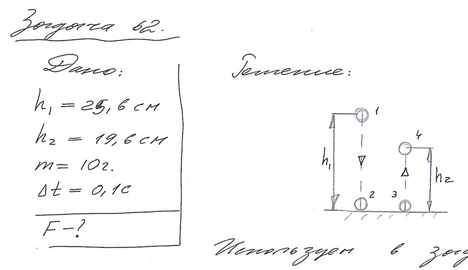 Задача 62.
Дано:
h₁ = 25,6 см
h₂ = 19,6 см
m = 10 г.
Δt = 0,1 с
F - ?
Решение:
1
h₁
2
4
3
h₂
Используем в